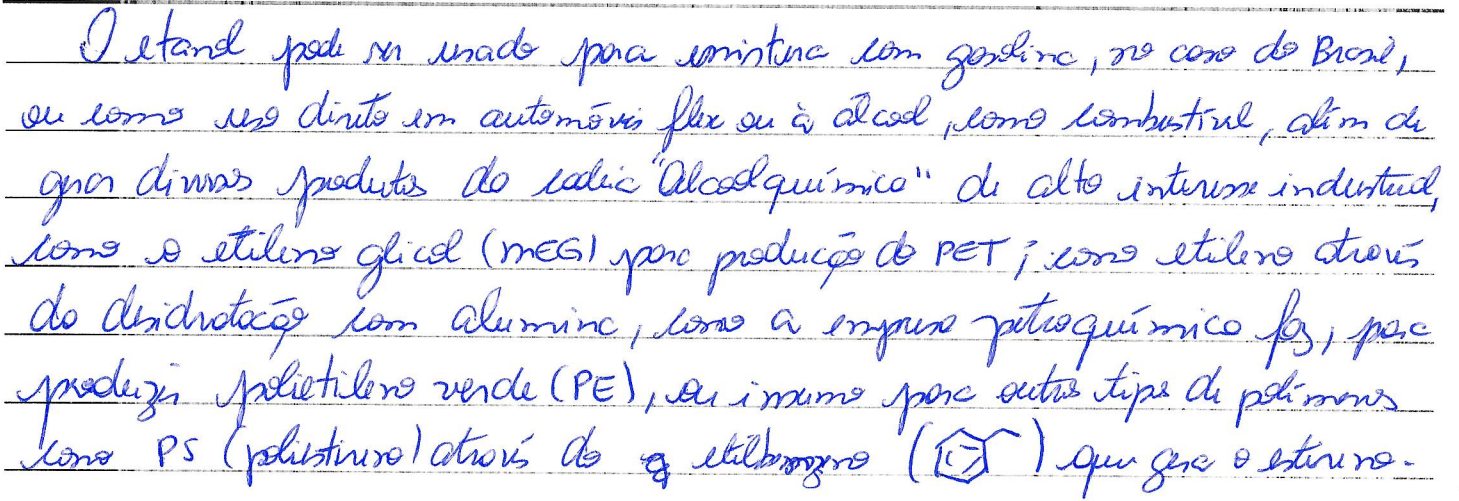 O etanol pode ser usado para mistura com gasolina, no caso do Brasil,
ou como uso direto em automóveis flex ou à álcool, como combustível, além de
gerar diversos produtos da cadeia "Alcoolquímica" de alto interesse industrial,
como o etileno glicol (MEG) para produção do PET; como etileno através
da desidratação com alumina, como a empresa petroquímica faz, para
produzir polietileno verde (PE), ou insumo para outros tipos de polímeros
como PS (poliestireno) através do etilbenzeno ( ) que gera o estireno.